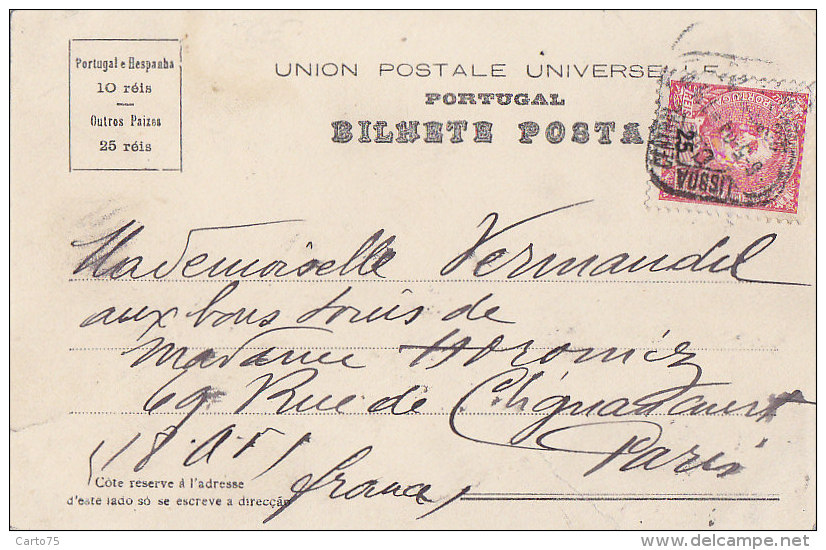 Portugal e Hespanha
10 réis
Outros Paizes
25 réis
UNION POSTALE UNIVERSELLE
PORTUGAL
BILHETE POSTAL
25
LISBOA
CENTRAL
Mademoiselle Vermandel
aux bons soins de
Madame
69 Rue de Clignancourt
Paris
(18.A.F)
france
Côte réservé à l'adresse
d'este lado só se escreve a direcção
Carto75
www.delcampe.net